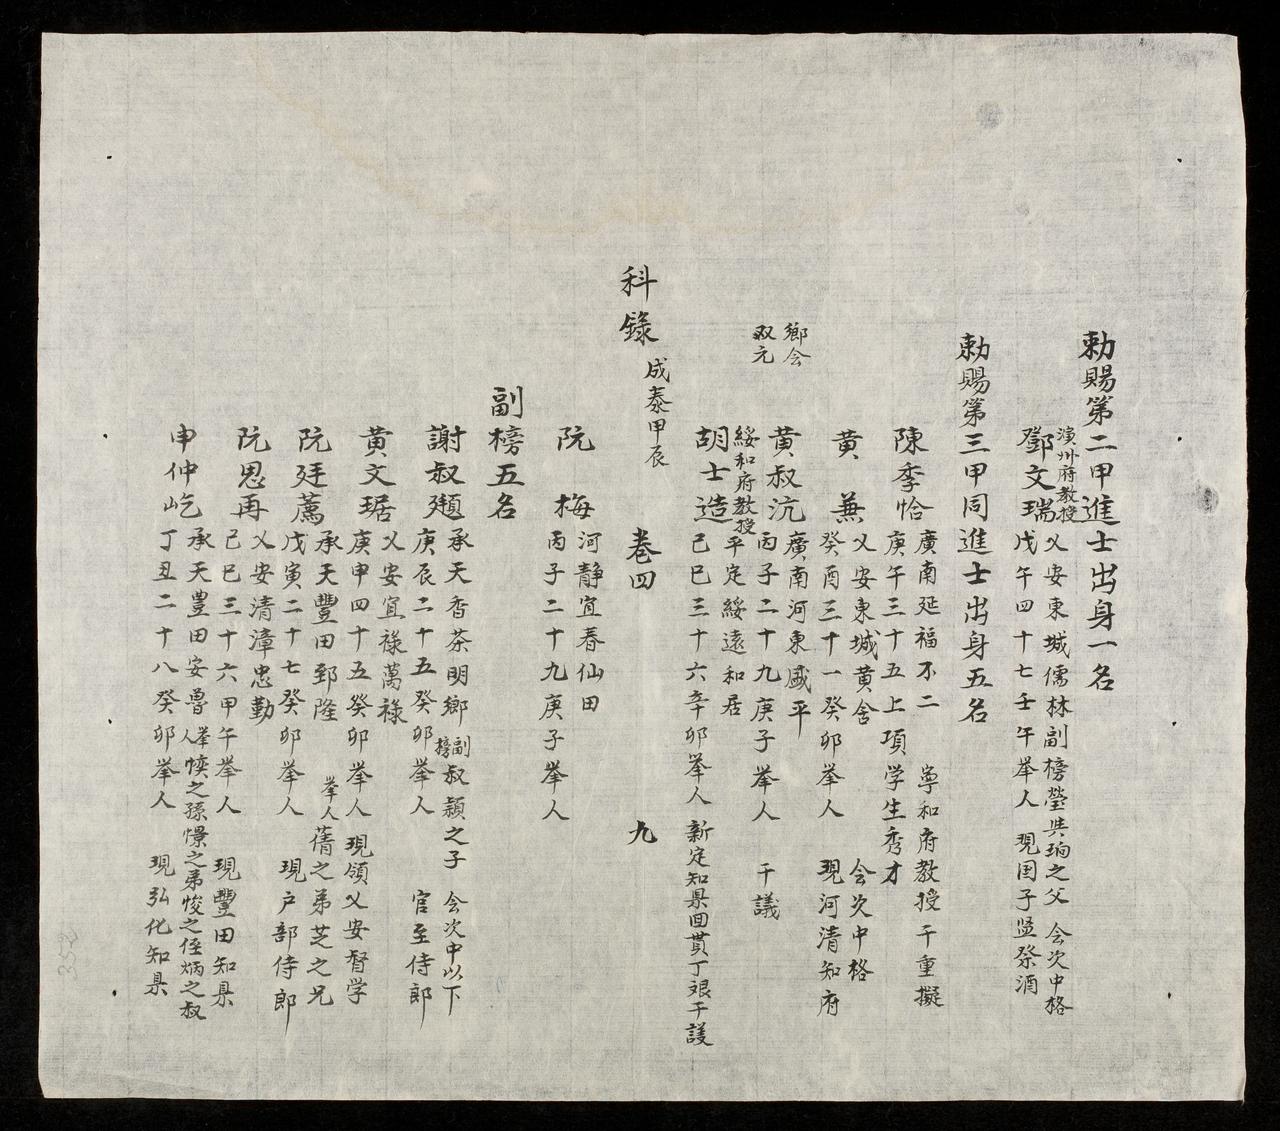 勅賜第二甲進士出身一名
演州府教授
鄧文瑞
乂安東城儒林副榜瑩 珣之父 会次中格
戊午四十七壬午举人 現国子監祭酒
勅賜第三甲同進士出身五名
陳季恰
廣南延福不二 寧和府教授干重擬
庚午三十五上項学生秀才
黄 兼
乂安東城黄舍 会次中格
癸酉三十一癸卯举人 現河清知府
鄉会
双元
黄叔沆
廣南河東盛平
丙子二十九庚子举人 干議
綏和府教授
胡士造
平定綏遠和居
己巳三十六辛卯举人 新定知県回貫丁艱干議
科錄 成泰甲辰 卷四 九
阮 梅
河静宜春仙田
丙子二十九庚子举人
副榜五名
謝叔𩔗
承天香茶明鄉 副榜叔穎之子 会次中以下
庚辰二十五癸卯举人 官至侍郎
黄文琚
乂安宜禄萬禄
庚申四十五癸卯举人 現領乂安督学
阮廷薦
承天豐田郅隆 举人蒨之弟芝之兄
戊寅二十七癸卯举人 現户部侍郎
阮思再
乂安清漳忠勤
己巳三十六甲午举人 現豐田知県
申仲㐹
承天豊田安魯 举人 之孫憬之弟悛之侄炳之叔
丁丑二十八癸卯举人 現弘化知県
353